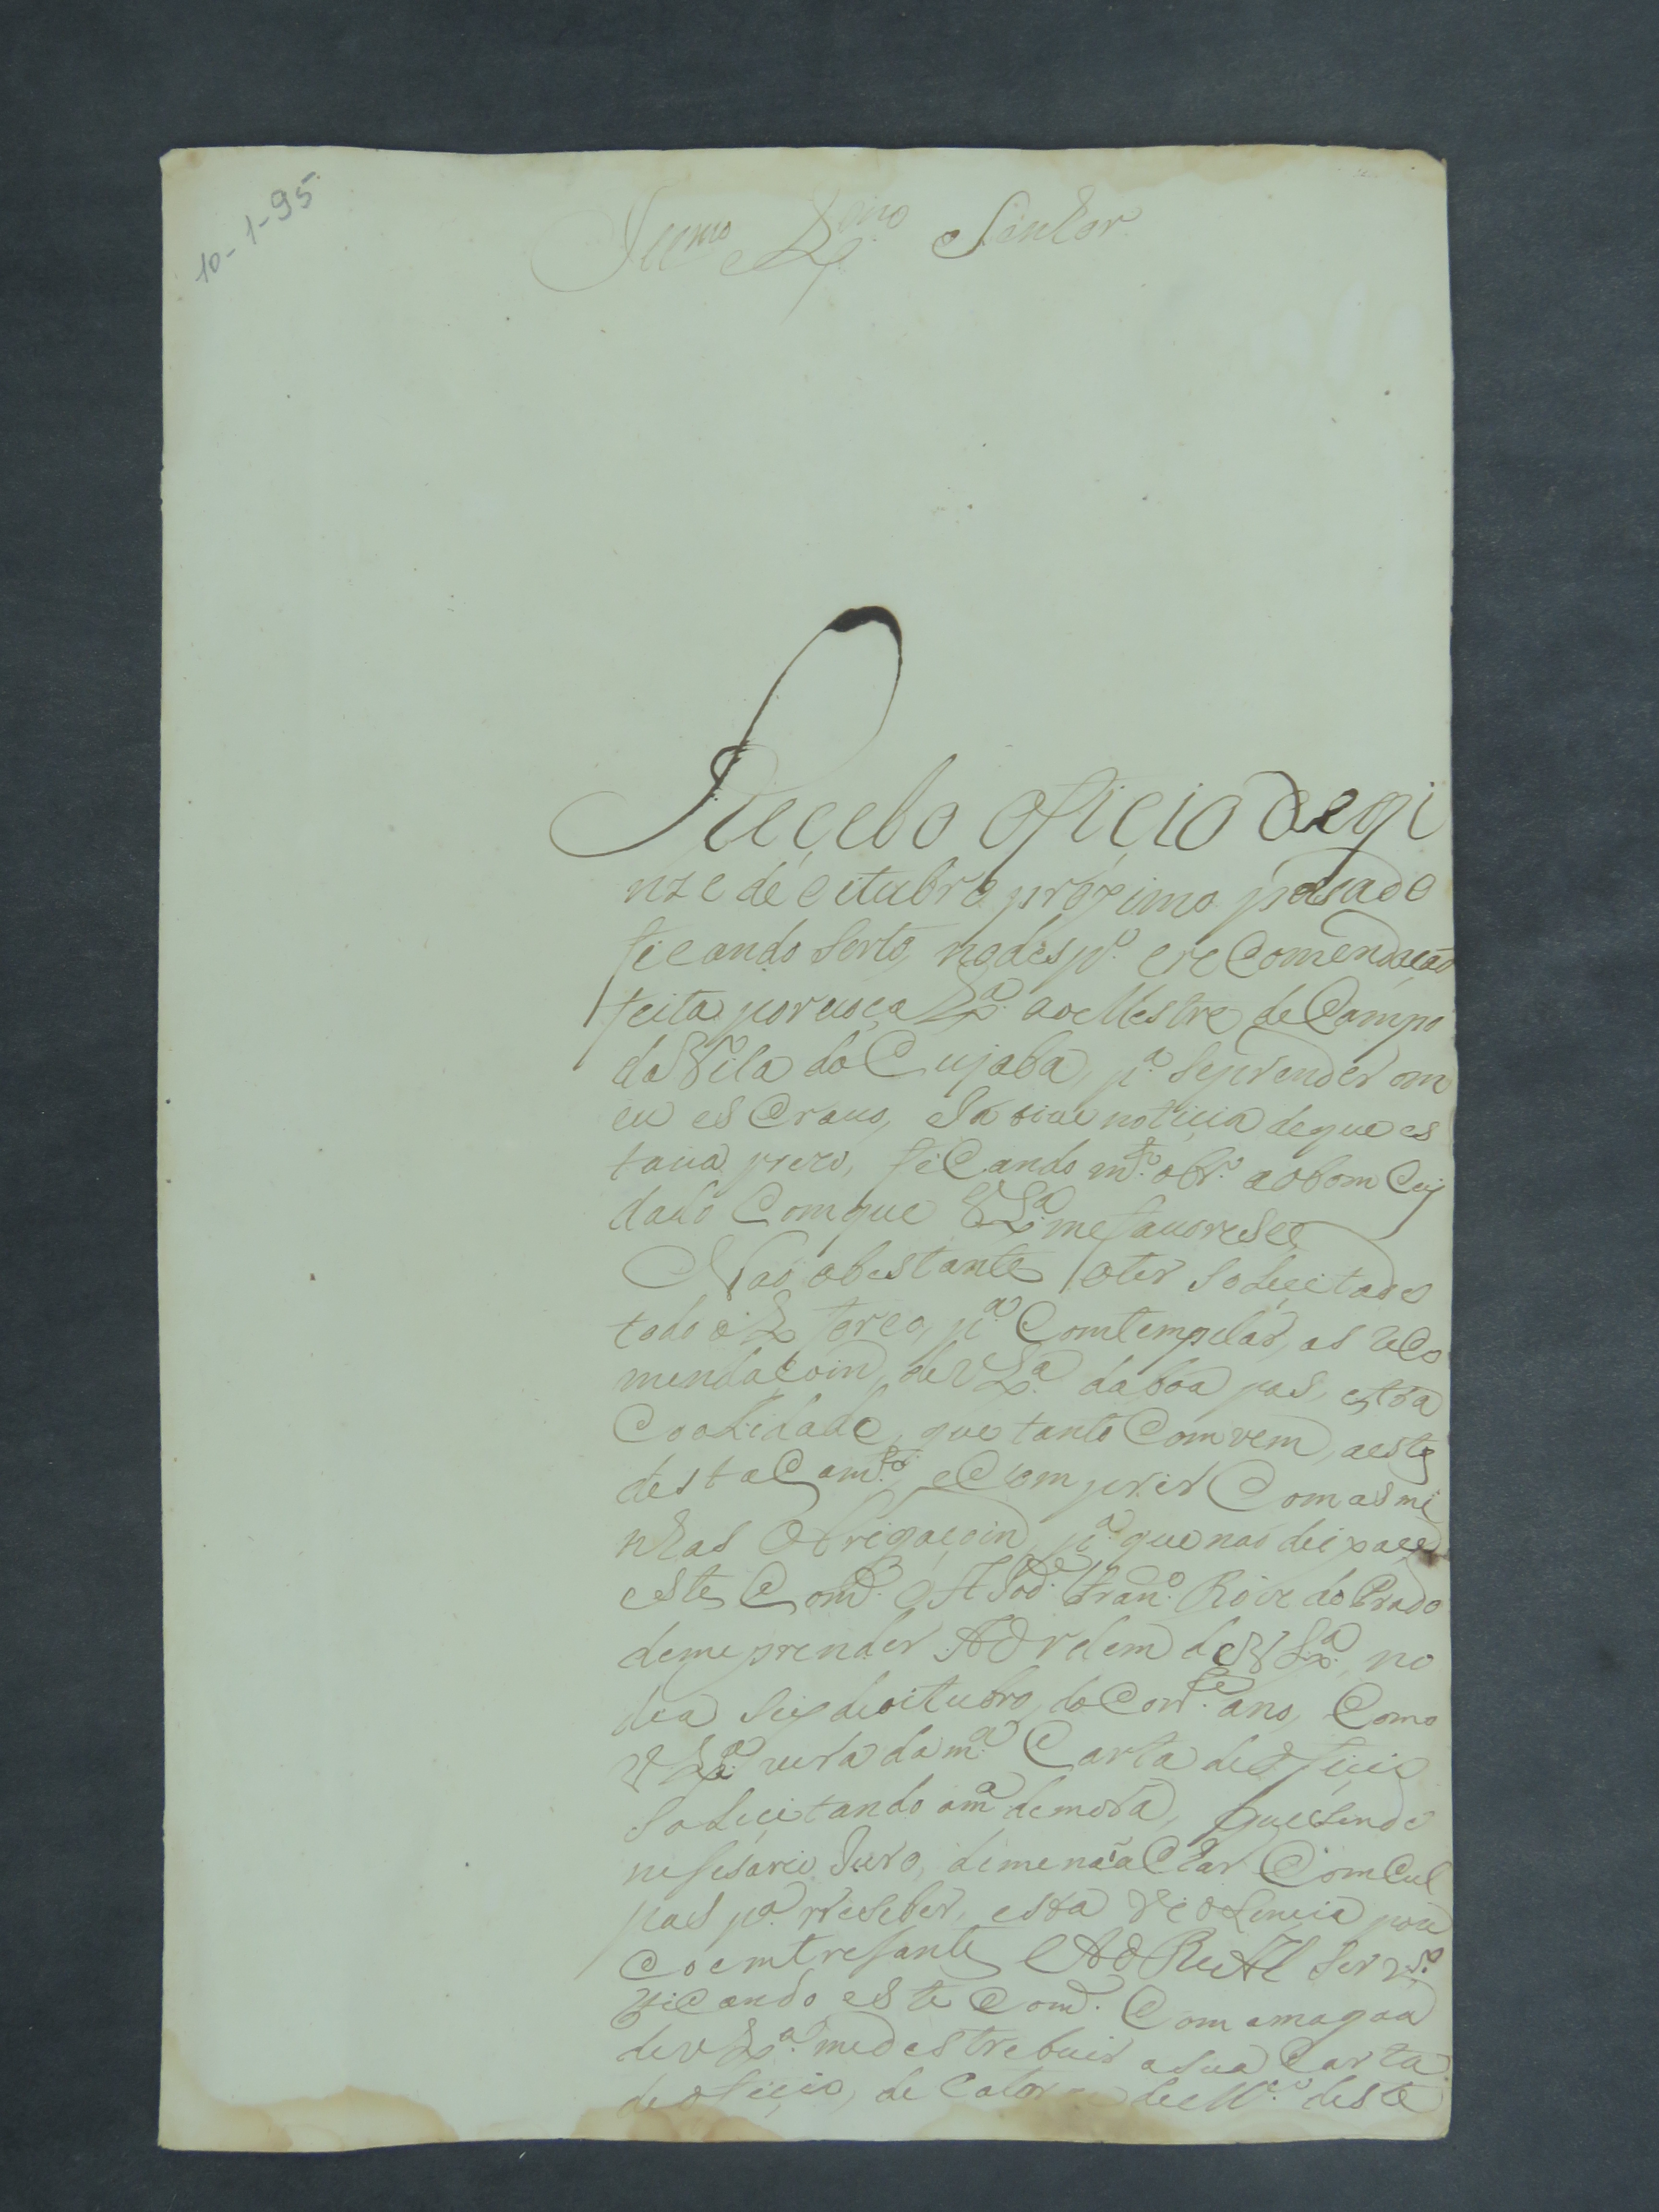 10-1-95
Illmo Exmo Senhor
Recebo oficio deqi
nze de eitubro próximo pasado
ficando serto, nadespº. ereComendacaó
feita por voca Exª. aoMestre deCampo
daVila do Cujaba, pª. seprender om
eu esCravo, eJa tive noticia deque es
tava prezo, fiCando mtº. obrº. aobom Cuj
dado Comque VExª. mefavorese
Naó obestante oter solicitado
todo oEx forco, pª. Comtemplár, as reCo
mendacoin, deVExª. daboa pas, estra
CoaLidade, que tanto Comvem, aeste
destaCamtº. eCumprir Comasmi
nhas Obrigacoin pª. que naó deixace
este Comde. Franº. Roiz do Prado
demeprender AOrdem deVExª. no
dia seis deoitubro, do Corte. ano, Como
VExª. verá damª. Carta deOficio
soLicitando omª. demora, quesendo
nesesario Juro, dimenaó aChar ComCul
pas pª. rreseber, esta VioLencia pou
Coemtresante AO ReAl serVsº.
fiCando este Comde. Com amagoa
deVExª. medestrebuir asua Carta
deoficio, de Cator de Mº. deste